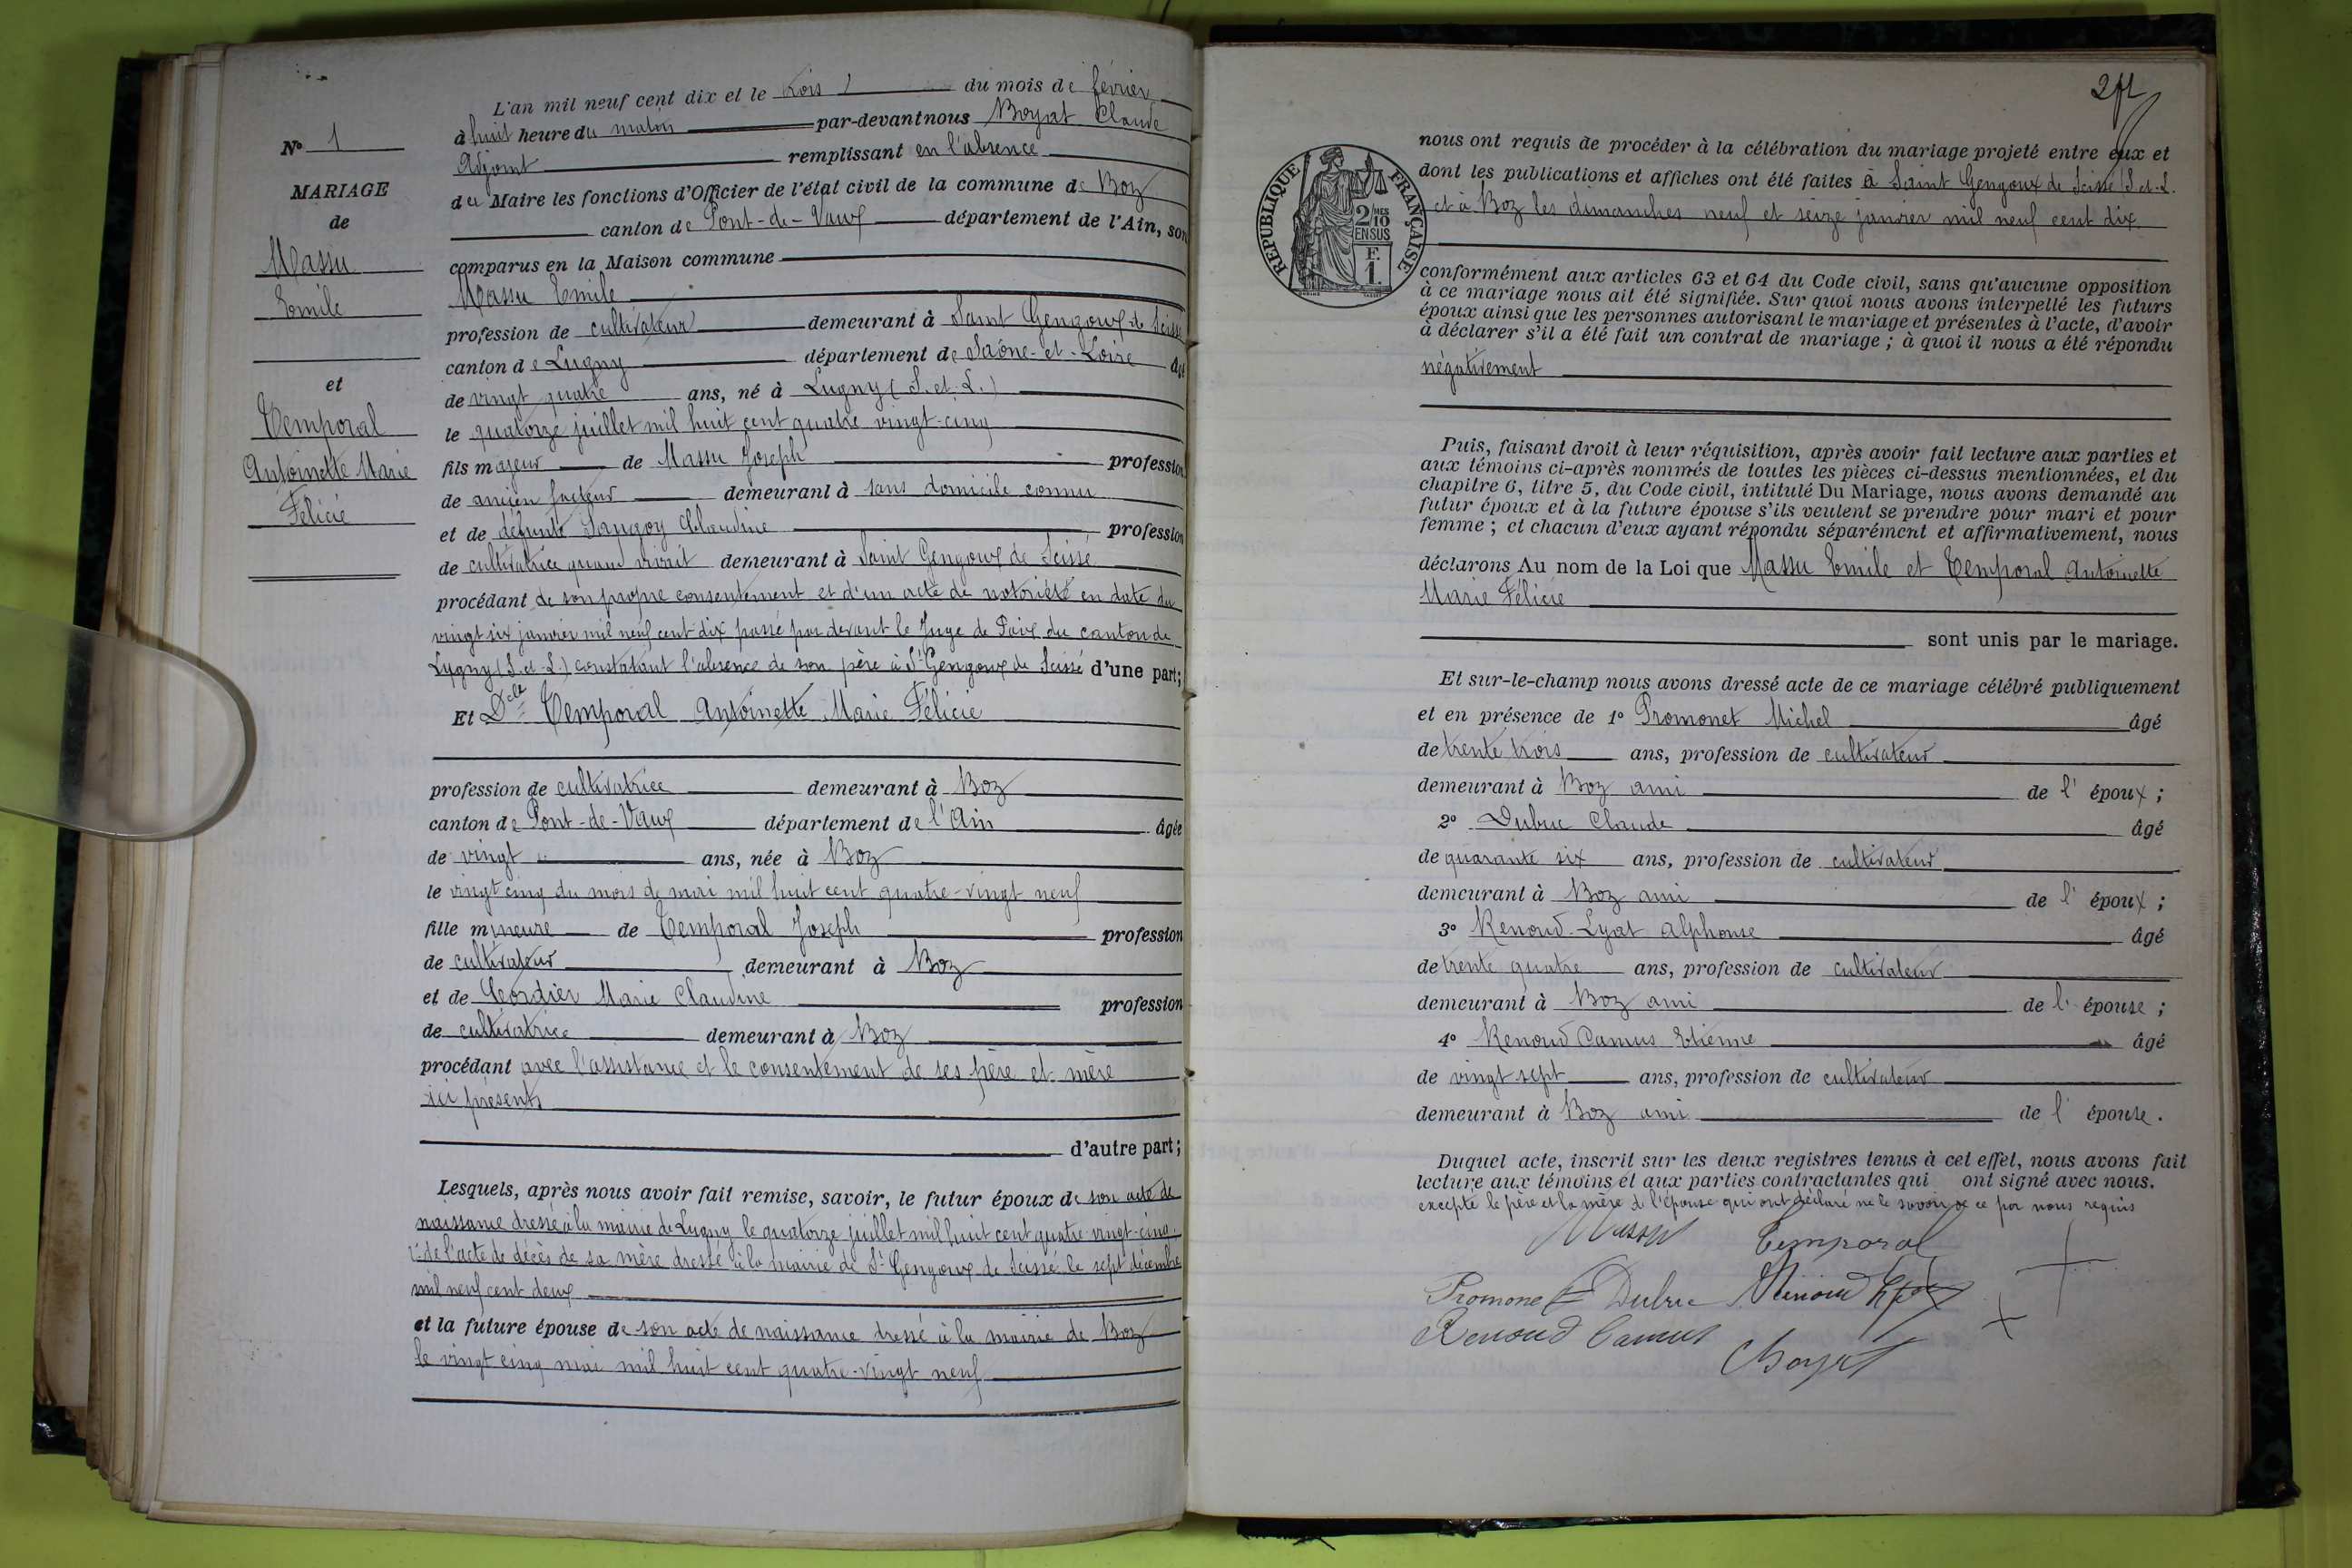 L'an mil neuf cent dix et le trois du mois de février
N° 1
à huit heure du matin par-devant nous Boyat Claude
Adjoint remplissant en l'absence
MARIAGE
du Maire les fonctions d'Officier de l'état civil de la commune de Boz
de
canton de Pont-de-Vaux département de l'Ain, son
Massu
comparus en la Maison commune
Emile
Massu Emile
profession de cultivateur demeurant à Saint Gengoux de Scissé
canton de Lugny département de Saône-et-Loire âgé
et
de vingt quatre ans, né à Lugny (S.et.L.)
Temporal
le quatorze juillet mil huit cent quatre vingt-cinq
Antoinette Marie
fils majeur de Massu Joseph profession
Félicie
de ancien facteur demeurant à sans domicile connu
et de défunte Sangoy Claudine profession
de cultivatrice quand vivait demeurant à Saint Gengoux de Scissé
procédant de son propre consentement et d'un acte de notoriété en date du
vingt six janvier mil neuf cent dix passé par devant le Juge de Paix du canton de
Lugny (S.et.L.) constatant l'absence de son père à St Gengoux de Scissé d'une part;
Et Delle Temporal Antoinette Marie Félicie
profession de cultivatrice demeurant à Boz
canton de Pont-de-Vaux département de l'Ain âgée
de vingt ans, née à Boz
le vingt cinq du mois de mai mil huit cent quatre-vingt neuf
fille mineure de Temporal Joseph profession
de cultivateur demeurant à Boz
et de Cordier Marie Claudine profession
de cultivatrice demeurant à Boz
procédant avec l'assistance et le consentement de ses père et mère
ici présents
d'autre part;
Lesquels, après nous avoir fait remise, savoir, le futur époux de son acte de
naissance dressé à la mairie de Lugny le quatorze juillet mil huit cent quatre vingt-cinq
2° de l'acte de décès de sa mère dressé à la mairie de St Gengoux de Scissé le sept décembre
mil neuf cent deux
et la future épouse de son acte de naissance dressé à la mairie de Boz
le vingt cinq mai mil huit cent quatre-vingt neuf
nous ont requis de procéder à la célébration du mariage projeté entre eux et
dont les publications et affiches ont été faites à Saint Gengoux de Scissé (S.et.L.
et à Boz les dimanches neuf et seize janvier mil neuf cent dix
REPUBLIQUE FRANÇAISE
2/10MES
EN SUS
F.
1.
conformément aux articles 63 et 64 du Code civil, sans qu'aucune opposition
à ce mariage nous ait été signifiée. Sur quoi nous avons interpellé les futurs
époux ainsi que les personnes autorisant le mariage et présentes à l'acte, d'avoir
à déclarer s'il a été fait un contrat de mariage ; à quoi il nous a été répondu
négativement
Puis, faisant droit à leur réquisition, après avoir fait lecture aux parties et
aux témoins ci-après nommés de toutes les pièces ci-dessus mentionnées, et du
chapitre 6, titre 5, du Code civil, intitulé Du Mariage, nous avons demandé au
futur époux et à la future épouse s'ils veulent se prendre pour mari et pour
femme ; et chacun d'eux ayant répondu séparément et affirmativement, nous
déclarons Au nom de la Loi que Massu Emile et Temporal Antoinette
Marie Félicie
sont unis par le mariage.
Et sur-le-champ nous avons dressé acte de ce mariage célébré publiquement
et en présence de 1° Promonet Michel âgé
de trente trois ans, profession de cultivateur
demeurant à Boz ami de l' époux ;
2° Dubuc Claude âgé
de quarante six ans, profession de cultivateur
demeurant à Boz ami de l' époux ;
3° Renoud-Lyat Alphonse âgé
de trente quatre ans, profession de cultivateur
demeurant à Boz ami de l' épouse ;
4° Renoud Camus Etienne âgé
de vingt sept ans, profession de cultivateur
demeurant à Boz ami de l' épouse.
Duquel acte, inscrit sur les deux registres tenus à cet effet, nous avons fait
lecture aux témoins et aux parties contractantes qui ont signé avec nous.
excepté le père et la mère de l'épouse qui ont déclaré ne le savoir de ce par nous requis
Massu Temporal
Promonet Dubuc Renoud Lyat
Renoud Camus
Boyat